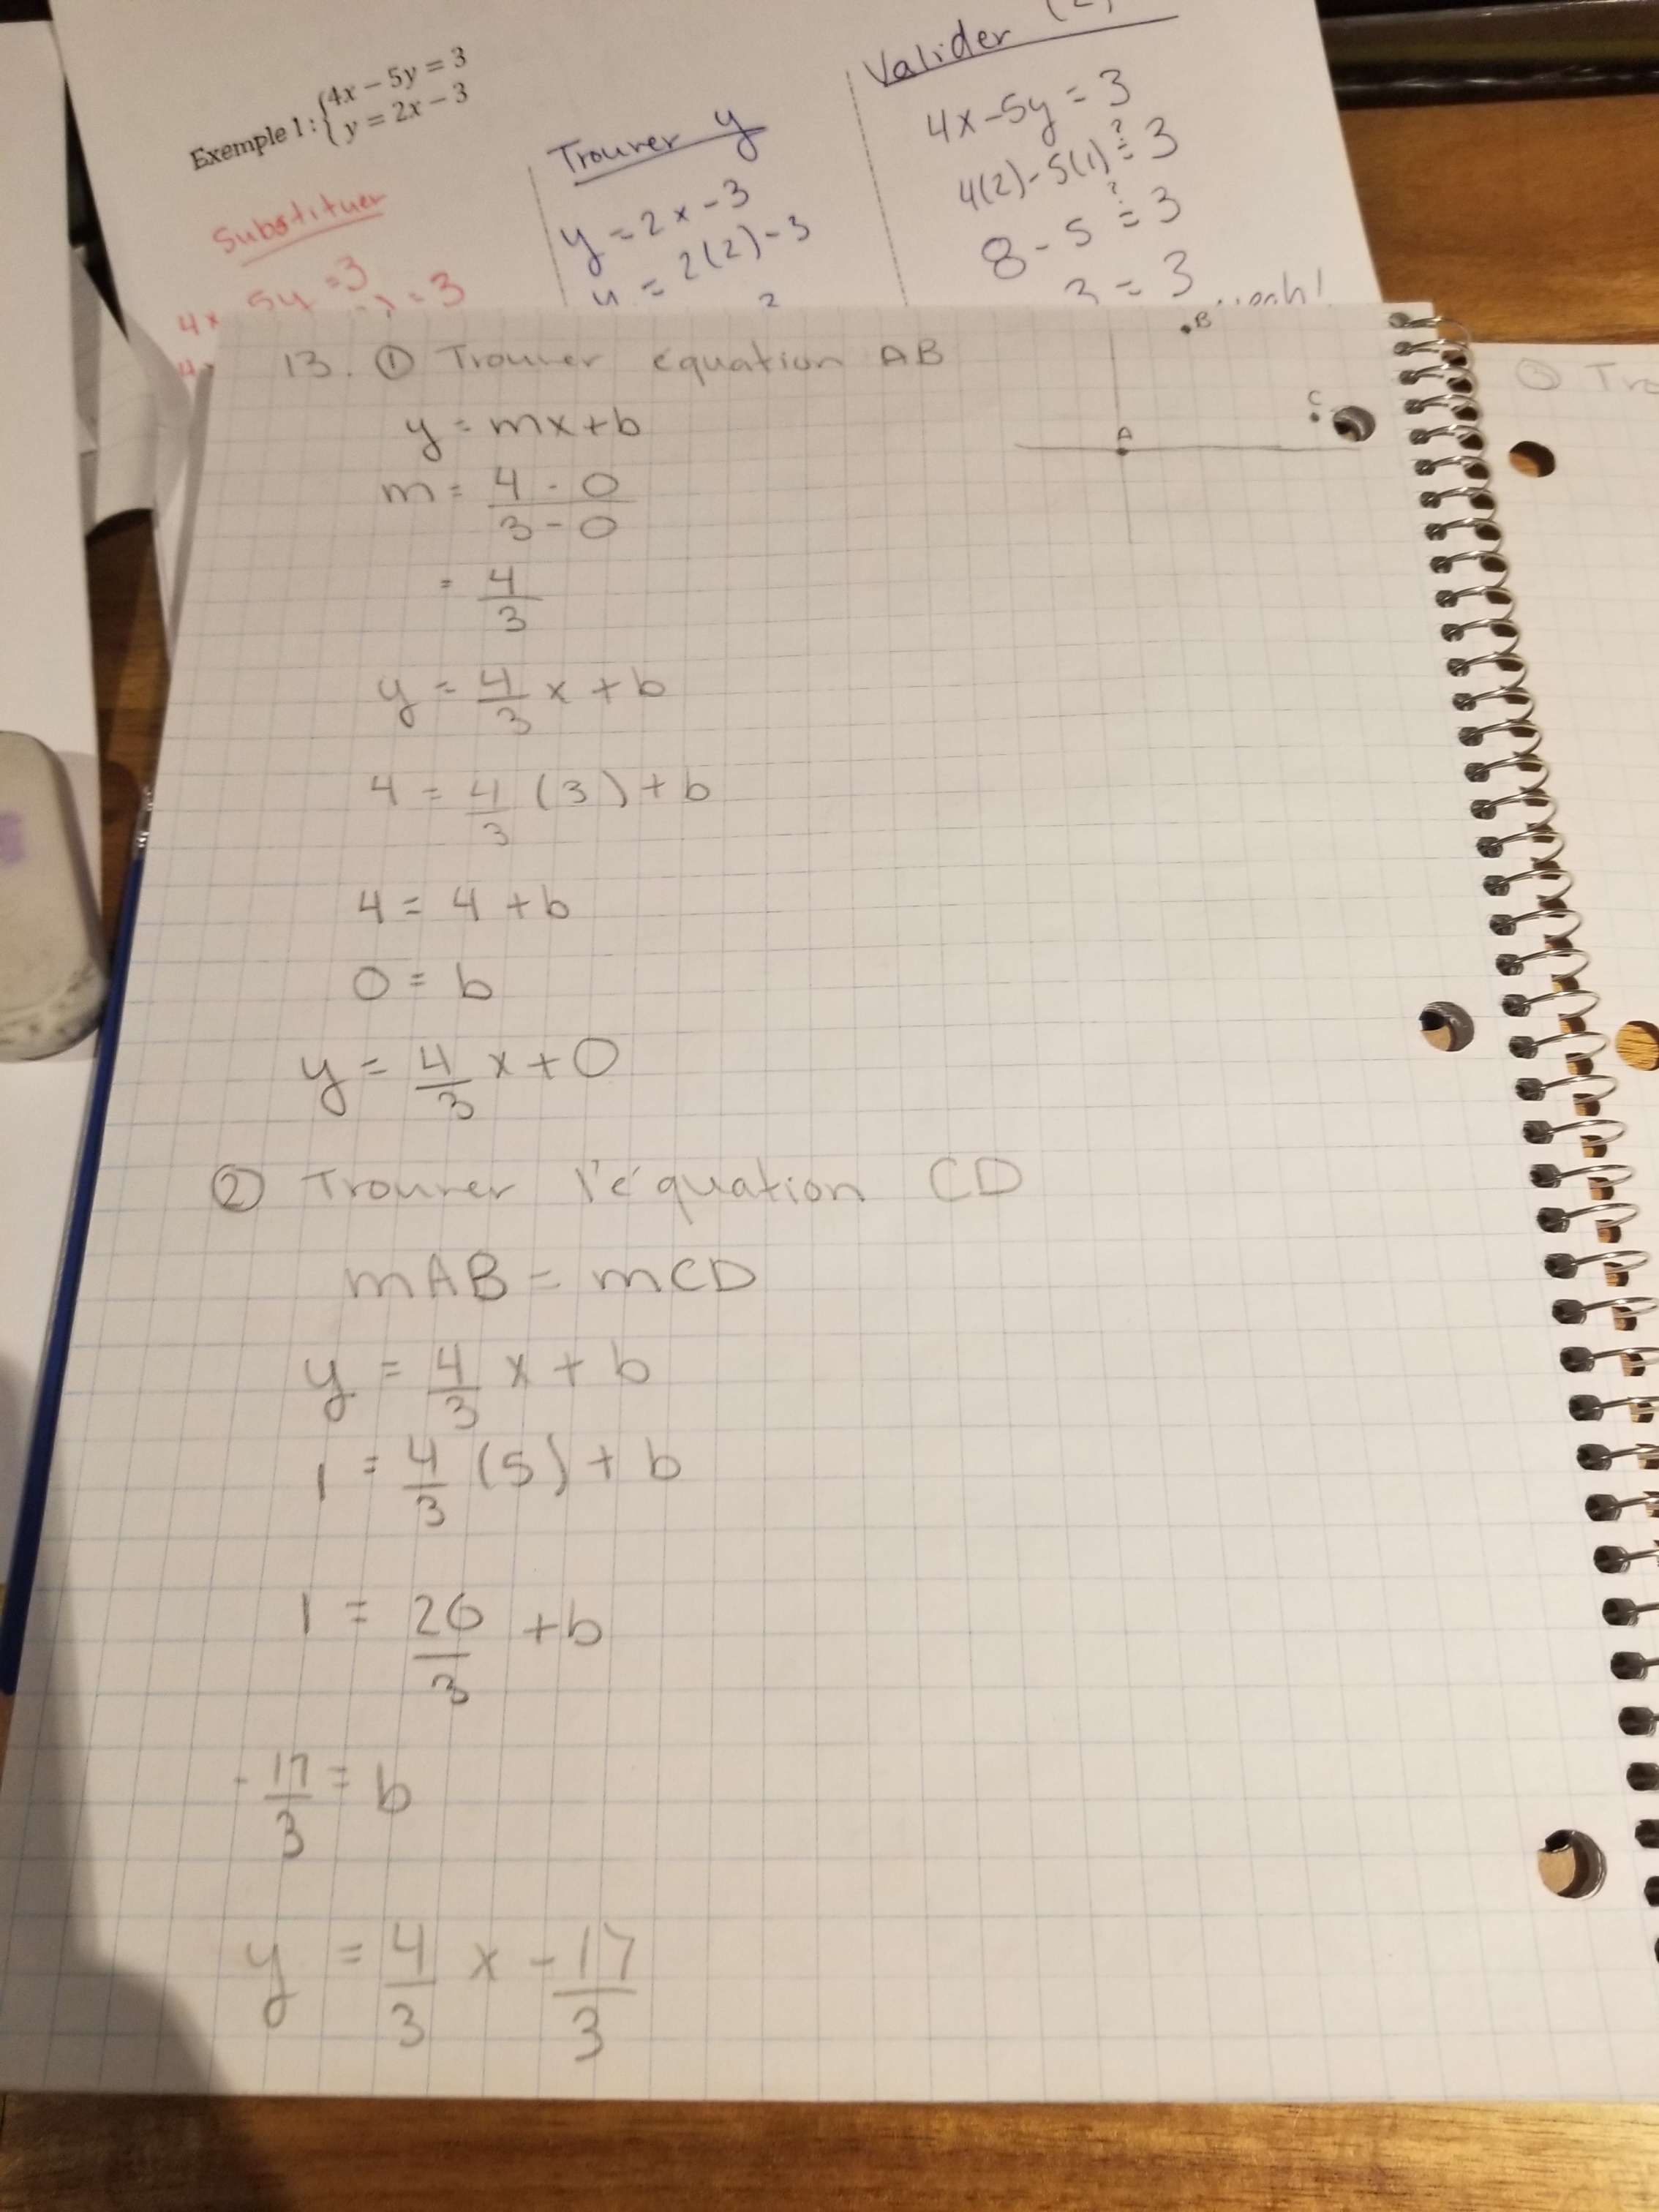 Exemple 1: {4x − 5y = 3
y = 2x − 3
Substituer
5y = 3
= 3
4x
Trouver y
y = 2x - 3
y = 2(2) - 3
Valider
4x - 5y = 3
4(2) - 5(1) ≟ 3
8 - 5 ≟ 3
3 = 3
13. ① Trouver équation AB
y = mx + b
m = 4 - 0
3 - 0
= 4
3
y = 4/3 x + b
4 = 4/3 (3) + b
4 = 4 + b
0 = b
y = 4/3 x + 0
② Trouver l'équation CD
mAB = mCD
y = 4/3 x + b
1 = 4/3 (5) + b
1 = 20/3 + b
-17/3 = b
y = 4/3 x - 17/3
B
C
A
③